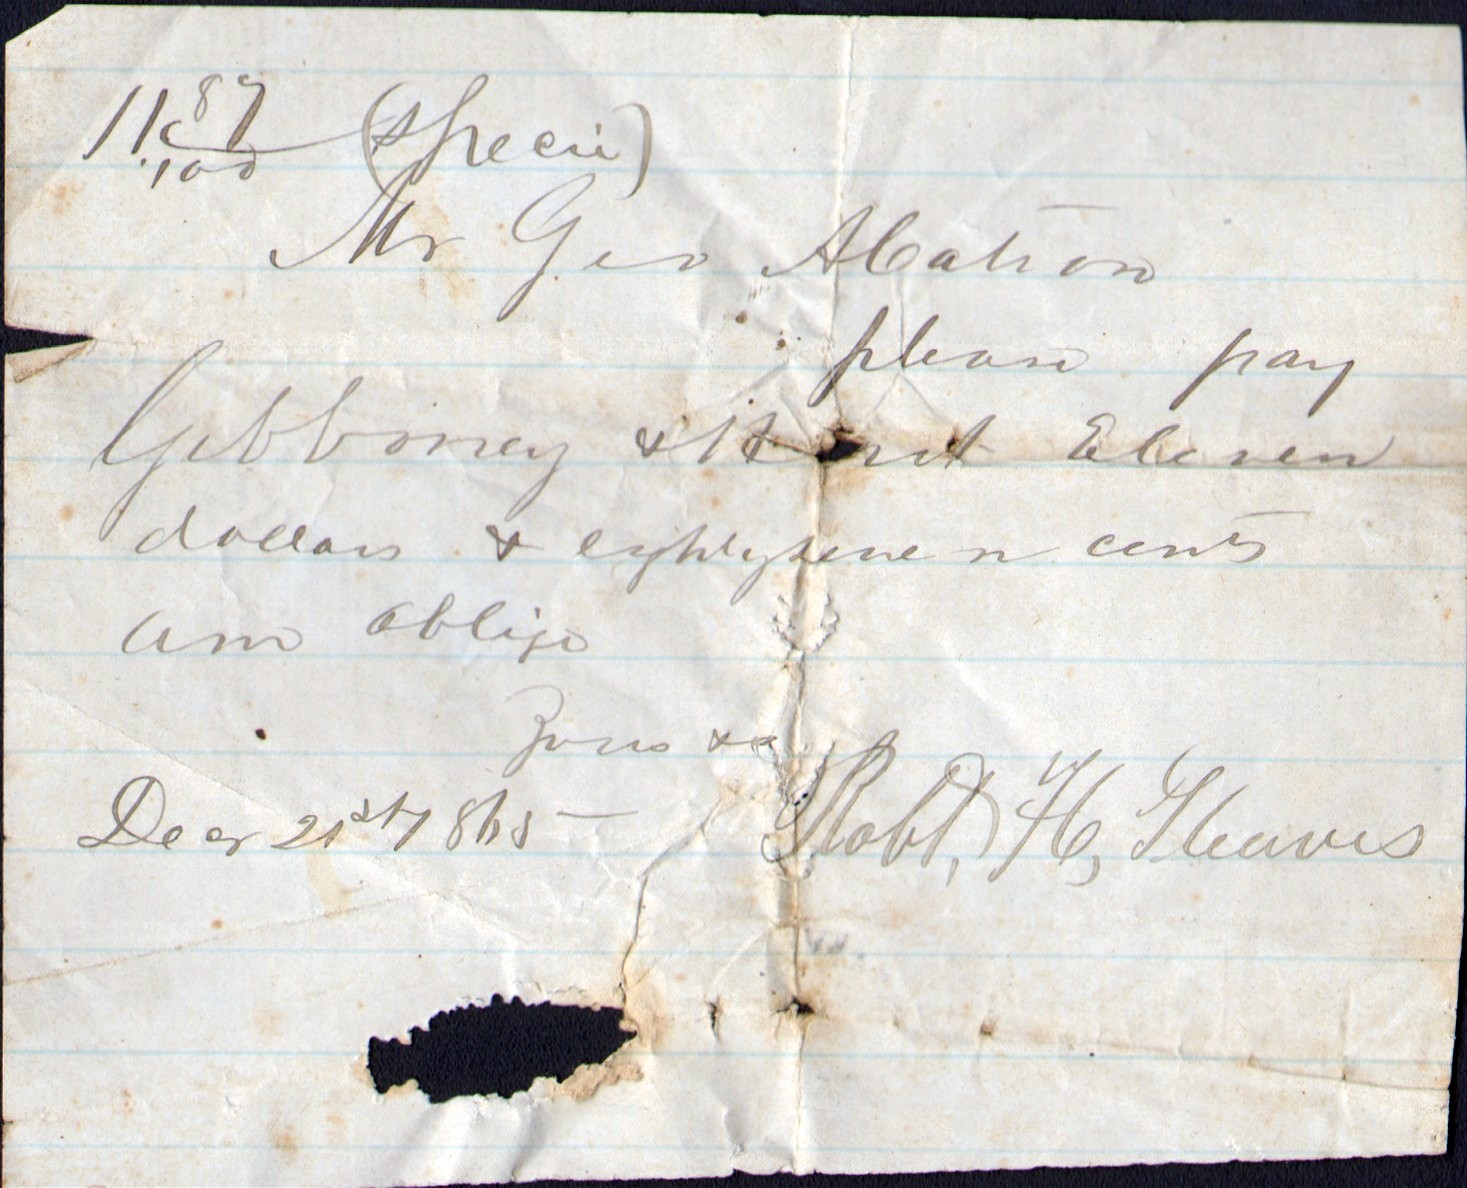 11 87/100 (Specie)
Mr Geo
please pay
Gibboney & Eleven
dollars & eightyseven cents
and oblige
Yours &c
Decr 21st / 1865 — Robt, H, Gleaves